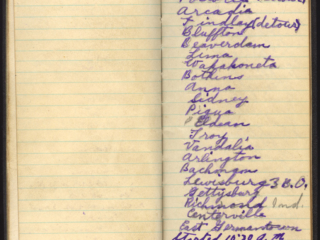 Arcadia
Findlay (detour)
Bluffton
Beaverdam
Lima
Wapakoneta
Botkins
Anna
Sidney
Piqua
Troy
Vandalia
Arlington
Bachmann
Lewisburg 3 B.O.
Gettysburg
Richmond Ind.
Centerville
East Germantown
Started 10:30 A.M.